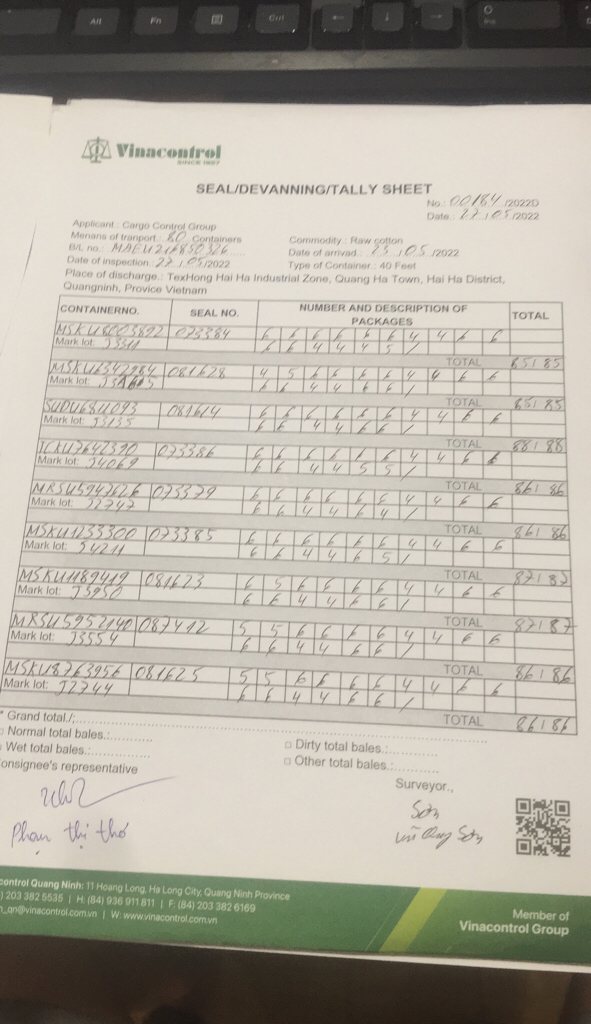 Alt Fn Ctrl
Ins
Vinacontrol
SINCE 1957
SEAL/DEVANNING/TALLY SHEET
No.: 00184 /2022D
Date.: 27/05/2022
Applicant.: Cargo Control Group
Menans of tranport.: 80 Containers
Commodity.: Raw cotton
B/L no.: MAEU216850326
Date of arrivad.: 23/05/2022
Date of inspection.: 27/05/2022
Type of Container.: 40 Feet
Place of discharge.: TexHong Hai Ha Industrial Zone, Quang Ha Town, Hai Ha District,
Quangninh, Provice Vietnam
CONTAINERNO. SEAL NO. NUMBER AND DESCRIPTION OF PACKAGES TOTAL
MSKU8003892 073384 6 6 6 6 6 6 4 4 6 6
Mark lot: 6 6 4 4 4 5 /
TOTAL 85/85
081628 4 5 6 6 6 6 4 4 6 6
Mark lot: 6 6 4 4 6 6 /
TOTAL 85/85
SUDU6811093 081614 6 6 6 6 6 6 4 4 6 6
Mark lot: J3135 6 6 4 4 6 6 /
TOTAL 88/88
073386 6 6 6 6 6 6 4 4 6 6
Mark lot: J4069 6 6 4 4 5 5 /
TOTAL 86/86
MRSU5947626 073379 6 6 6 6 6 6 4 4 6 6
Mark lot: J2747 6 6 4 4 6 4 /
TOTAL 86/86
MSKU1233300 073385 6 6 6 6 6 6 4 4 6 6
Mark lot: J4211 6 6 4 4 6 5 /
TOTAL 87/87
MSKU1189419 081623 6 5 6 6 6 6 4 4 6 6
Mark lot: J3950 6 6 4 4 6 6 /
TOTAL 87/87
MRSU5952140 087412 5 5 6 6 6 6 4 4 6 6
Mark lot: J3554 6 6 4 4 6 6 /
TOTAL 86/86
MSKU8763956 081625 5 5 6 6 6 6 4 4 6 6
Mark lot: J2744 6 6 4 4 6 6 /
TOTAL 86/86
* Grand total./:
Normal total bales.:
□ Dirty total bales.:
Wet total bales.:
□ Other total bales.:
onsignee's representative
Surveyor.,
Phan thị thơ
Sơn
Vũ Quang Sơn
control Quang Ninh: 11 Hoang Long, Ha Long City, Quang Ninh Province
) 203 382 5535 | H: (84) 936 911 811 | F: (84) 203 382 6169
n_qn@vinacontrol.com.vn | W: www.vinacontrol.com.vn
Member of
Vinacontrol Group